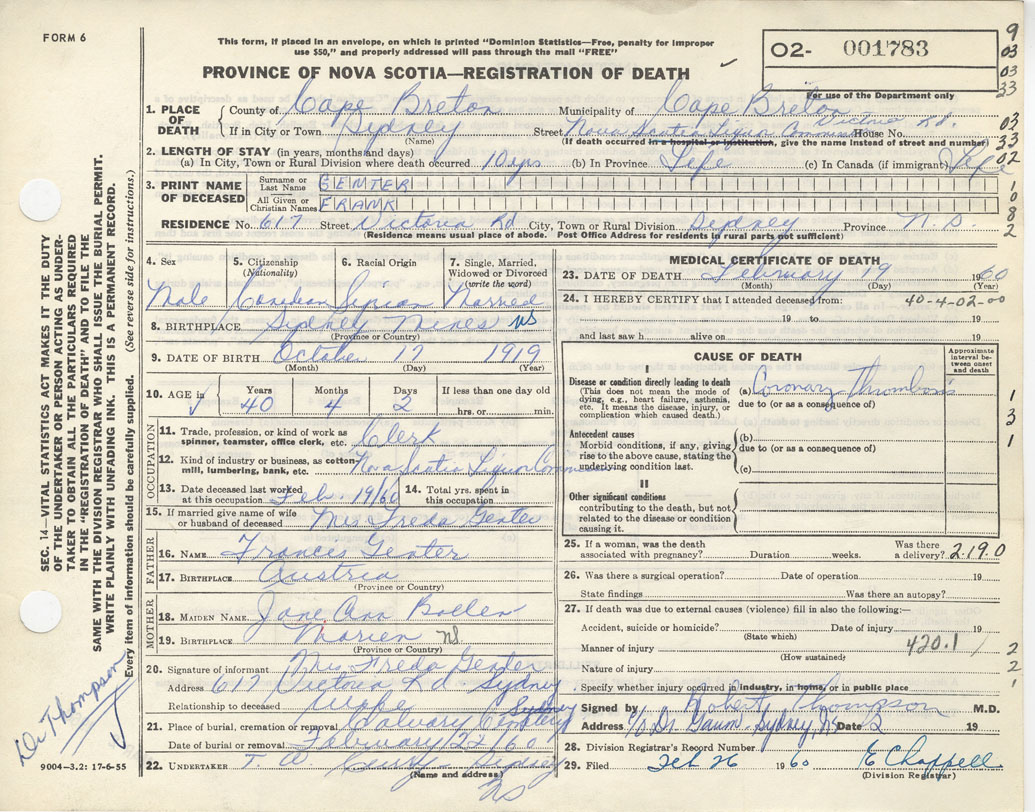 FORM 6
This form, if placed in an envelope, on which is printed "Dominion Statistics—Free, penalty for improper
use $50," and properly addressed will pass through the mail "FREE"
PROVINCE OF NOVA SCOTIA—REGISTRATION OF DEATH
02- 001783
For use of the Department only
9
03
03
33
1. PLACE OF DEATH
County of Cape Breton Municipality of Cape Breton
If in City or Town Sydney Street Nova Scotia Liquor Commission Victoria Rd. House No.
(Name) (If death occurred in a hospital or institution, give the name instead of street and number)
03
33
02
2. LENGTH OF STAY (in years, months and days)
(a) In City, Town or Rural Division where death occurred 10 yrs (b) In Province Life (c) In Canada (if immigrant) Life
3. PRINT NAME OF DECEASED
Surname or Last Name GENTER
All Given or Christian Names FRANK
1
0
8
2
RESIDENCE No. 617 Street Victoria Rd City, Town or Rural Division Sydney Province N.S.
(Residence means usual place of abode. Post Office Address for residents in rural parts not sufficient)
4. Sex 5. Citizenship (Nationality) 6. Racial Origin 7. Single, Married, Widowed or Divorced (write the word)
Male Canadian Married
8. BIRTHPLACE Sydney Mines NS
(Province or Country)
9. DATE OF BIRTH October 17 1919
(Month) (Day) (Year)
10. AGE in Years 40 Months 4 Days 2 If less than one day old hrs. or min.
OCCUPATION
11. Trade, profession, or kind of work as spinner, teamster, office clerk, etc. Clerk
12. Kind of industry or business, as cotton-mill, lumbering, bank, etc. Nova Scotia Liquor Comm
13. Date deceased last worked at this occupation Feb. 19/60 14. Total yrs. spent in this occupation
15. If married give name of wife or husband of deceased Mrs Freda Genter
FATHER
16. NAME Frances Genter
17. BIRTHPLACE Austria
(Province or Country)
MOTHER
18. MAIDEN NAME Jane Ann
19. BIRTHPLACE NS
(Province or Country)
20. Signature of informant Mrs Freda Genter
Address 617 Victoria Rd. Sydney
Relationship to deceased Wife
21. Place of burial, cremation or removal Calvary Cemetery Sydney
Date of burial or removal February 22/60
22. UNDERTAKER T. W. Sydney
(Name and address)
NS
MEDICAL CERTIFICATE OF DEATH
23. DATE OF DEATH February 19 1960
(Month) (Day) (Year)
24. I HEREBY CERTIFY that I attended deceased from: 40-4-02-00
19 to 19
and last saw h alive on 19
CAUSE OF DEATH
Approximate interval between onset and death
I
Disease or condition directly leading to death
(This does not mean the mode of dying, e.g., heart failure, asthenia, etc. It means the disease, injury, or complication which caused death.)
(a) Coronary Thrombosis
due to (or as a consequence of)
Antecedent causes
Morbid conditions, if any, giving rise to the above cause, stating the underlying condition last.
(b)
due to (or as a consequence of)
(c)
II
Other significant conditions
contributing to the death, but not related to the disease or condition causing it.
1
3
1
25. If a woman, was the death associated with pregnancy? Duration weeks. Was there a delivery? 2190
26. Was there a surgical operation? Date of operation 19
State findings Was there an autopsy?
27. If death was due to external causes (violence) fill in also the following:—
Accident, suicide or homicide? Date of injury 19
(State which)
Manner of injury 420.1
(How sustained)
Nature of injury
2
2
1
Specify whether injury occurred in industry, in home, or in public place
Signed by Robert Thompson M.D.
Address c/o Dr. Gaum Sydney, NS Date 2 19
28. Division Registrar's Record Number
29. Filed Feb 26 1960 E Chappell
(Division Registrar)
SEC. 14—VITAL STATISTICS ACT MAKES IT THE DUTY
OF THE UNDERTAKER OR PERSON ACTING AS UNDER-
TAKER TO OBTAIN ALL THE PARTICULARS REQUIRED
IN THE "REGISTRATION OF DEATH" AND TO FILE THE
SAME WITH THE DIVISION REGISTRAR WHO SHALL ISSUE THE BURIAL PERMIT.
WRITE PLAINLY WITH UNFADING INK. THIS IS A PERMANENT RECORD.
Every item of information should be carefully supplied. (See reverse side for instructions.)
Dr Thompson
9004-3.2: 17-6-55